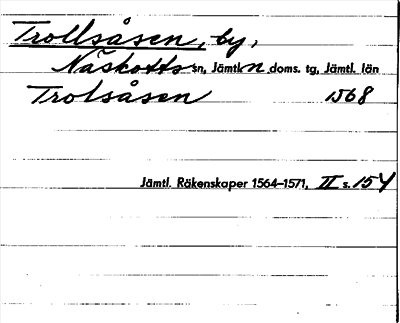 Trollsåsen, by,
Näskotts sn, Jämtl. n doms. tg, Jämtl. län
Trolsåsen 1568
Jämtl. Räkenskaper 1564–1571, II s. 154